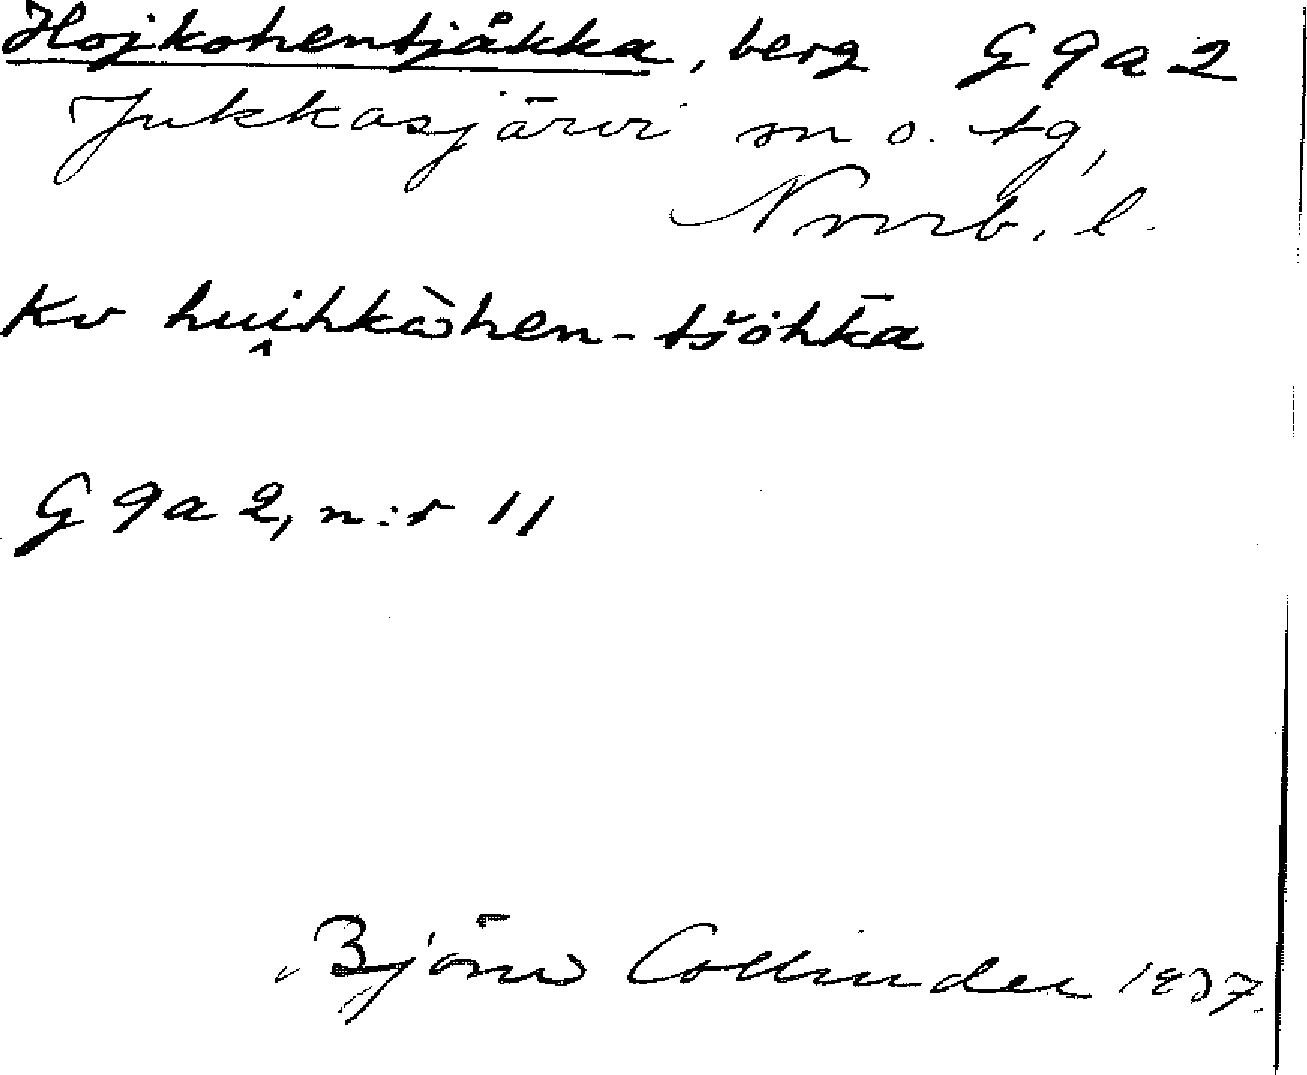 Hojkohentjåkka, berg G 9 a 2
Jukkasjärvi sn o. tg,
Norrb. l.
Kv hui̭hkàhen-tšohk̄a
G 9 a 2, n:r 11
Björn Collinder 1937.